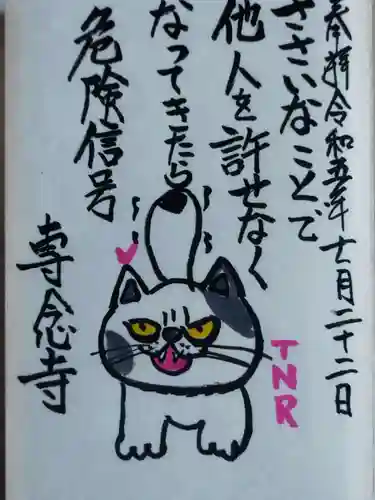 奉拝 令和五年 十一月二十二日
ささいなことで
他人を許せなく
なってきたら
危険信号
専念寺
TNR